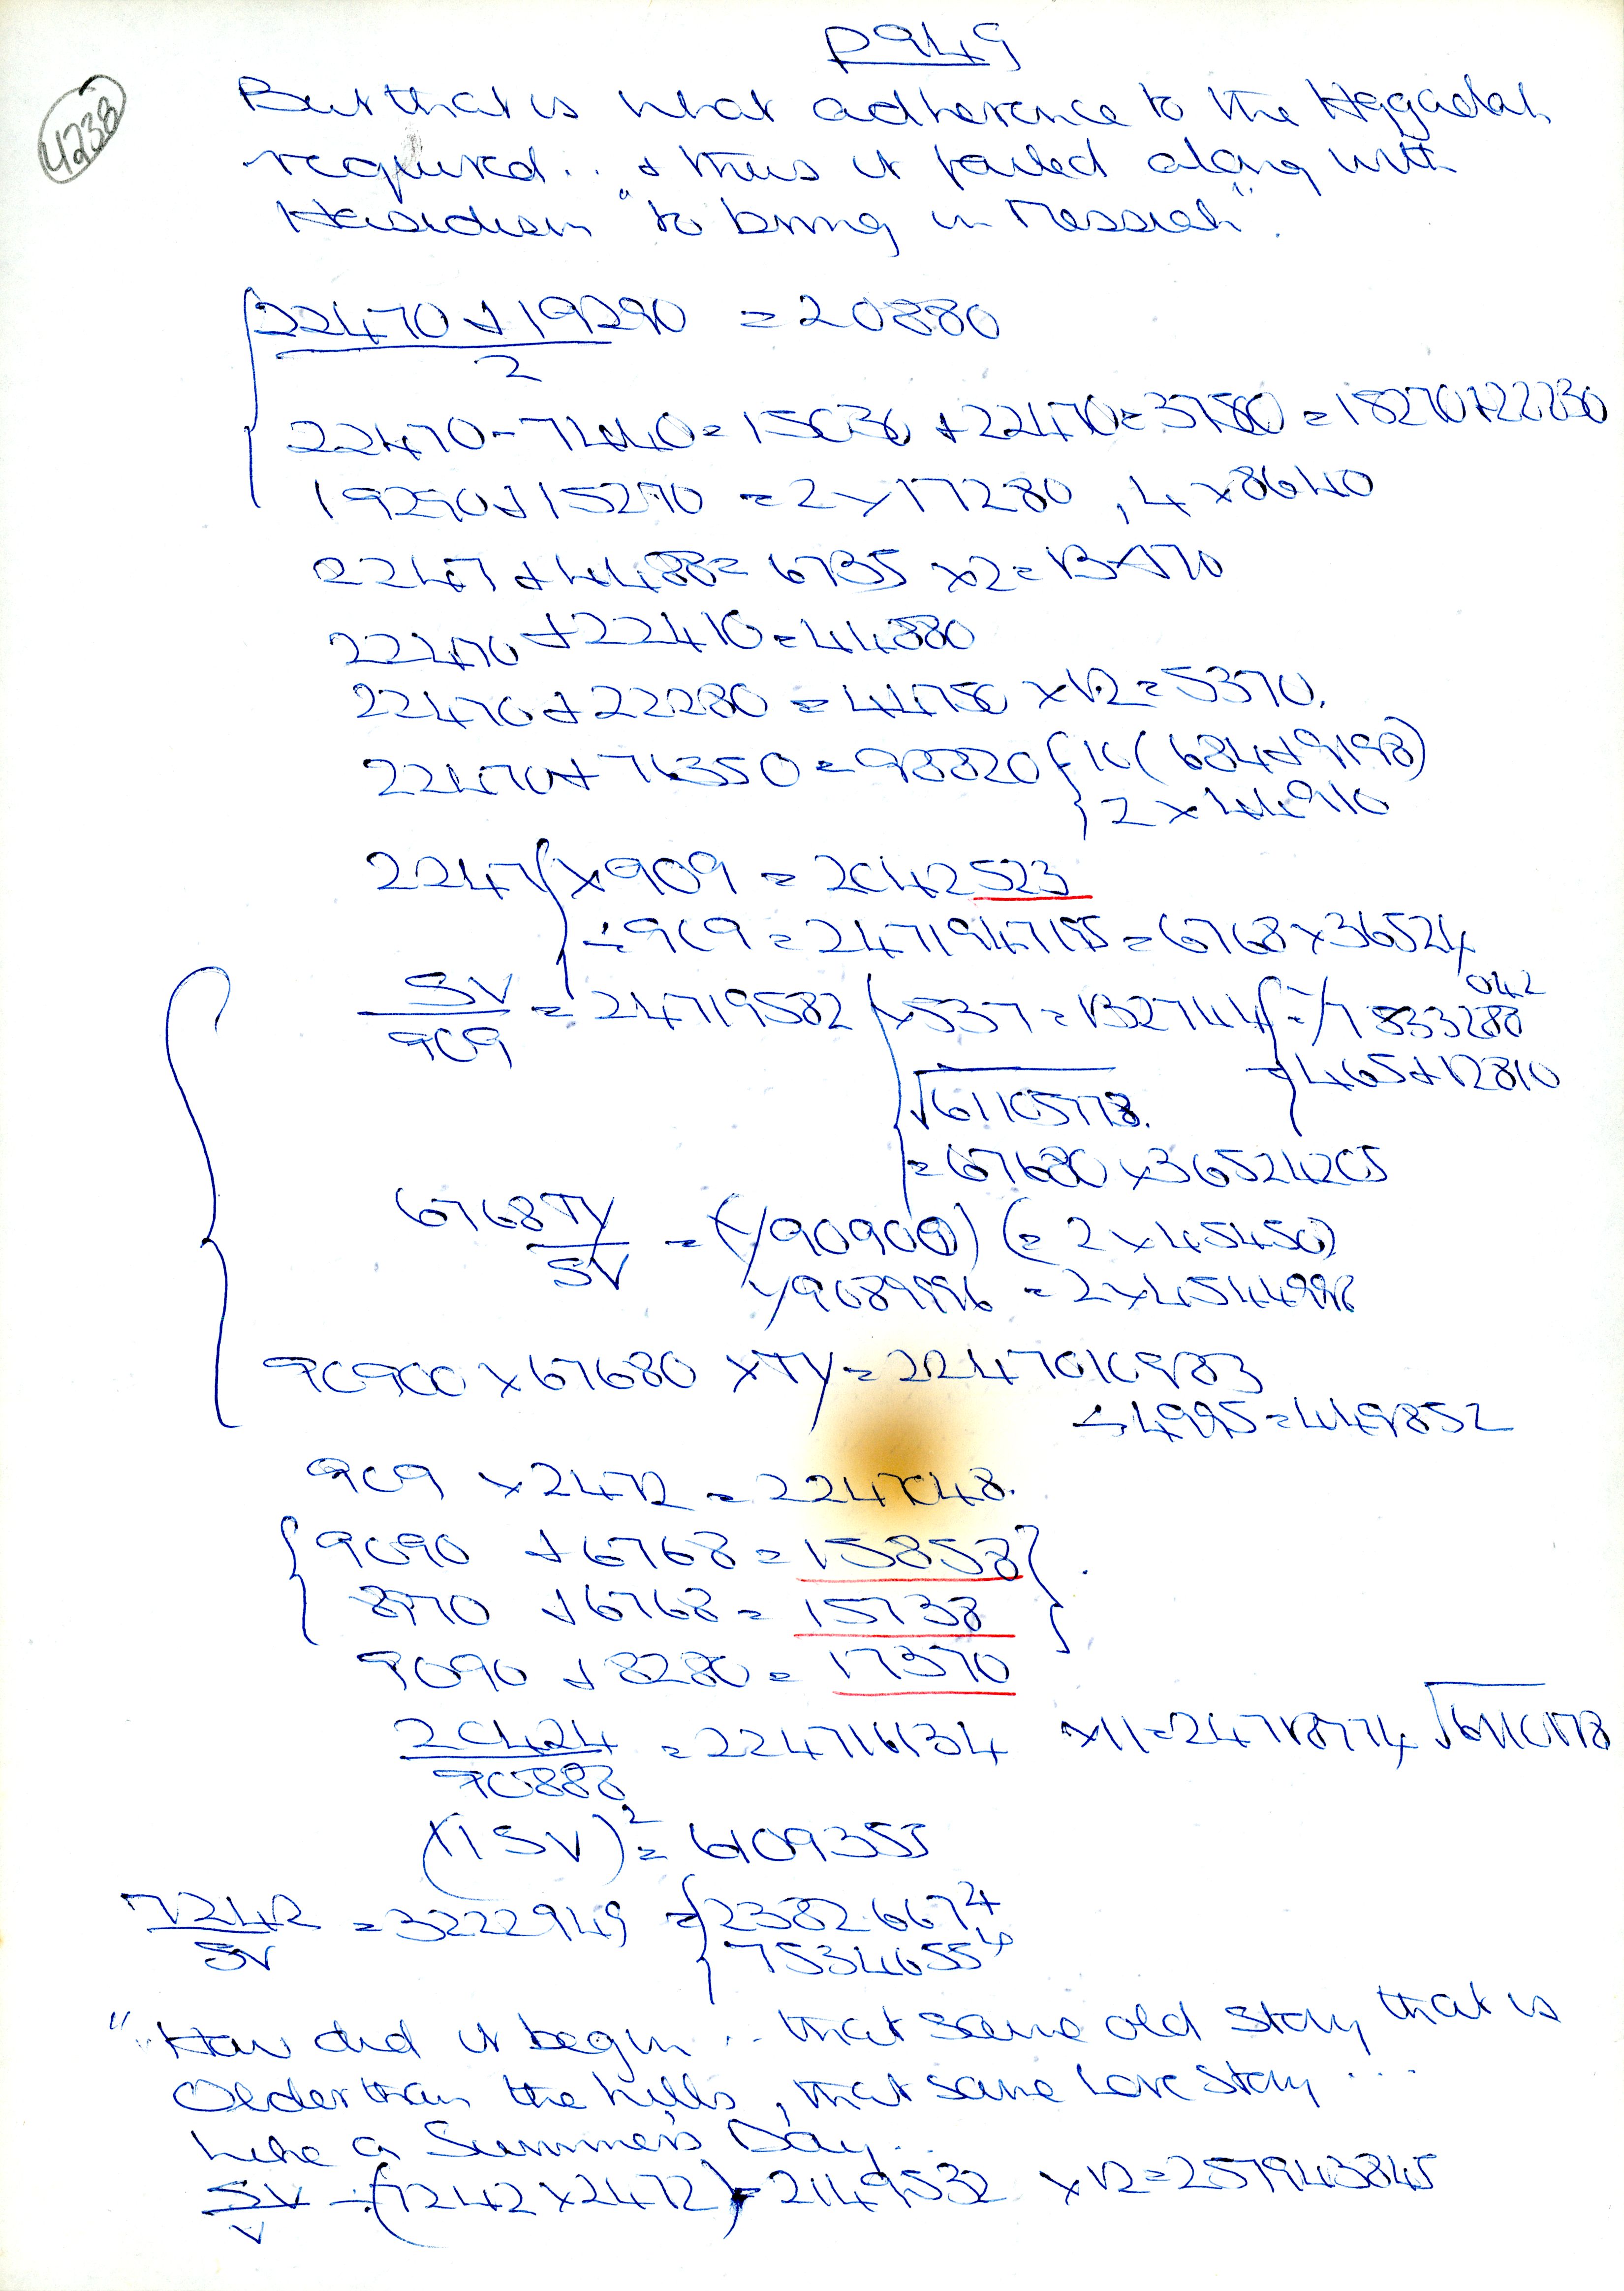 P949
4238
But that is what adherence to the Aggadah
required... & thus it failed along with
Hasidism "to bring in Messiah".
22470 + 19290 = 20880
2
22470 - 7440 = 15030 + 22470 = 37500 = 15270 + 22230
19290 + 15270 = 2 × 17280, 4 × 8640
2247 + 4488 = 6735 × 2 = 13470
22470 + 22410 = 44880
22470 + 22280 = 44750 × 12 = 5370.
22470 + 76350 = 98820 { 10(684 + 9198)
2 × 49410
2247 { × 909 = 2042523
÷ 909 = 2471947195 = 6768 × 36524
SV
909 = 24719582 { × 537 = 132744 { = 1/7533288
042
= 465 + 12810
√61105778.
= 67680 × 36524205
6768TY
SV = (1/90900) (= 2 × 45450)
1/9089996 = 2 × 4544998
90900 × 67680 × TY = 2247010983
÷ 4995 = 449852
909 × 2472 = 2247048.
{ 9090 + 6768 = 15858 }.
8970 + 6768 = 15738
9090 + 8280 = 17370
20424
90888 = 224716134 × 11 = 24718774 √6110178
(11SV)² = 6109355
7242
SV = 3222949 = { 2382667⁴
7534655⁶
"..How did it begin... that same old story that is
Older than the hills, that same Love Story...
Like a Summer's Day...
SV
V ÷ (7242 × 2472) = 2149532 × 12 = 257943845